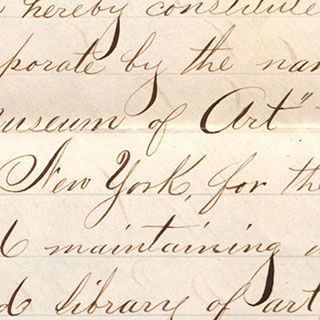 hereby constitute
porate by the nam
useum of Art"
New York, for the
d maintaining
d library of art,